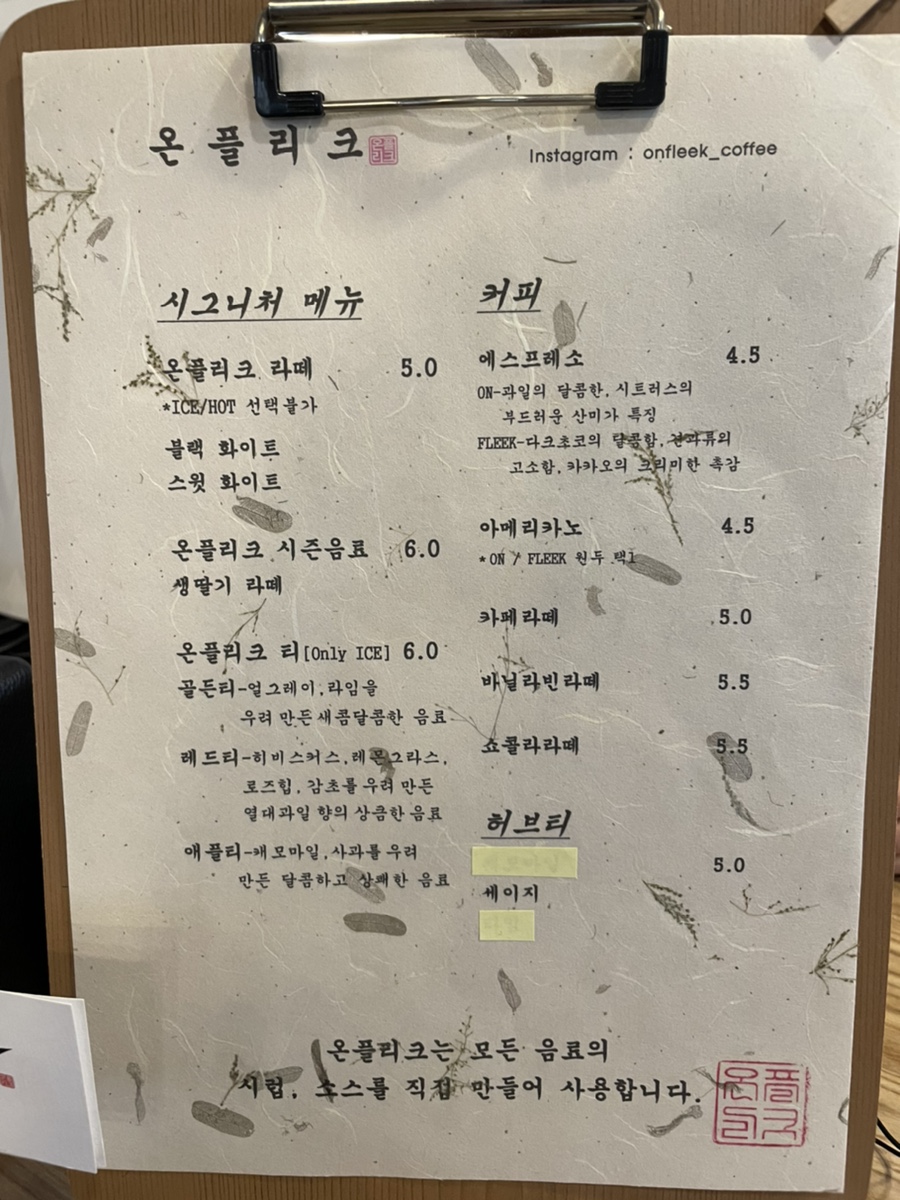 온플리크
온플리크
Instagram : onfleek_coffee
시그니처 메뉴
온플리크 라떼 5.0
*ICE/HOT 선택불가
블랙 화이트
스윗 화이트
온플리크 시즌음료 6.0
생딸기 라떼
온플리크 티[Only ICE] 6.0
골든티-얼그레이,라임을
우려 만든새콤달콤한 음료
레드티-히비스커스,레몬그라스,
로즈힙, 감초를우려 만든
열대과일 향의 상큼한음료
애플티-캐모마일,사과를우려
만든 달콤하고 상쾌한 음료
커피
에스프레소 4.5
ON-과일의 달콤한, 시트러스의
부드러운 산미가 특징
FLEEK-다크초코의 달콤함, 견과류의
고소함,카카오의 크리미한 촉감
아메리카노 4.5
*ON / FLEEK 원두 택1
카페라떼 5.0
바닐라빈라떼 5.5
쇼콜라라떼 5.5
허브티
5.0
세이지
온플리크는 모든 음료의
시럽, 소스를 직접 만들어 사용합니다.
온플
리크